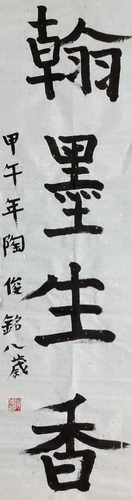 翰墨生香
甲午年陶俊銘八歲